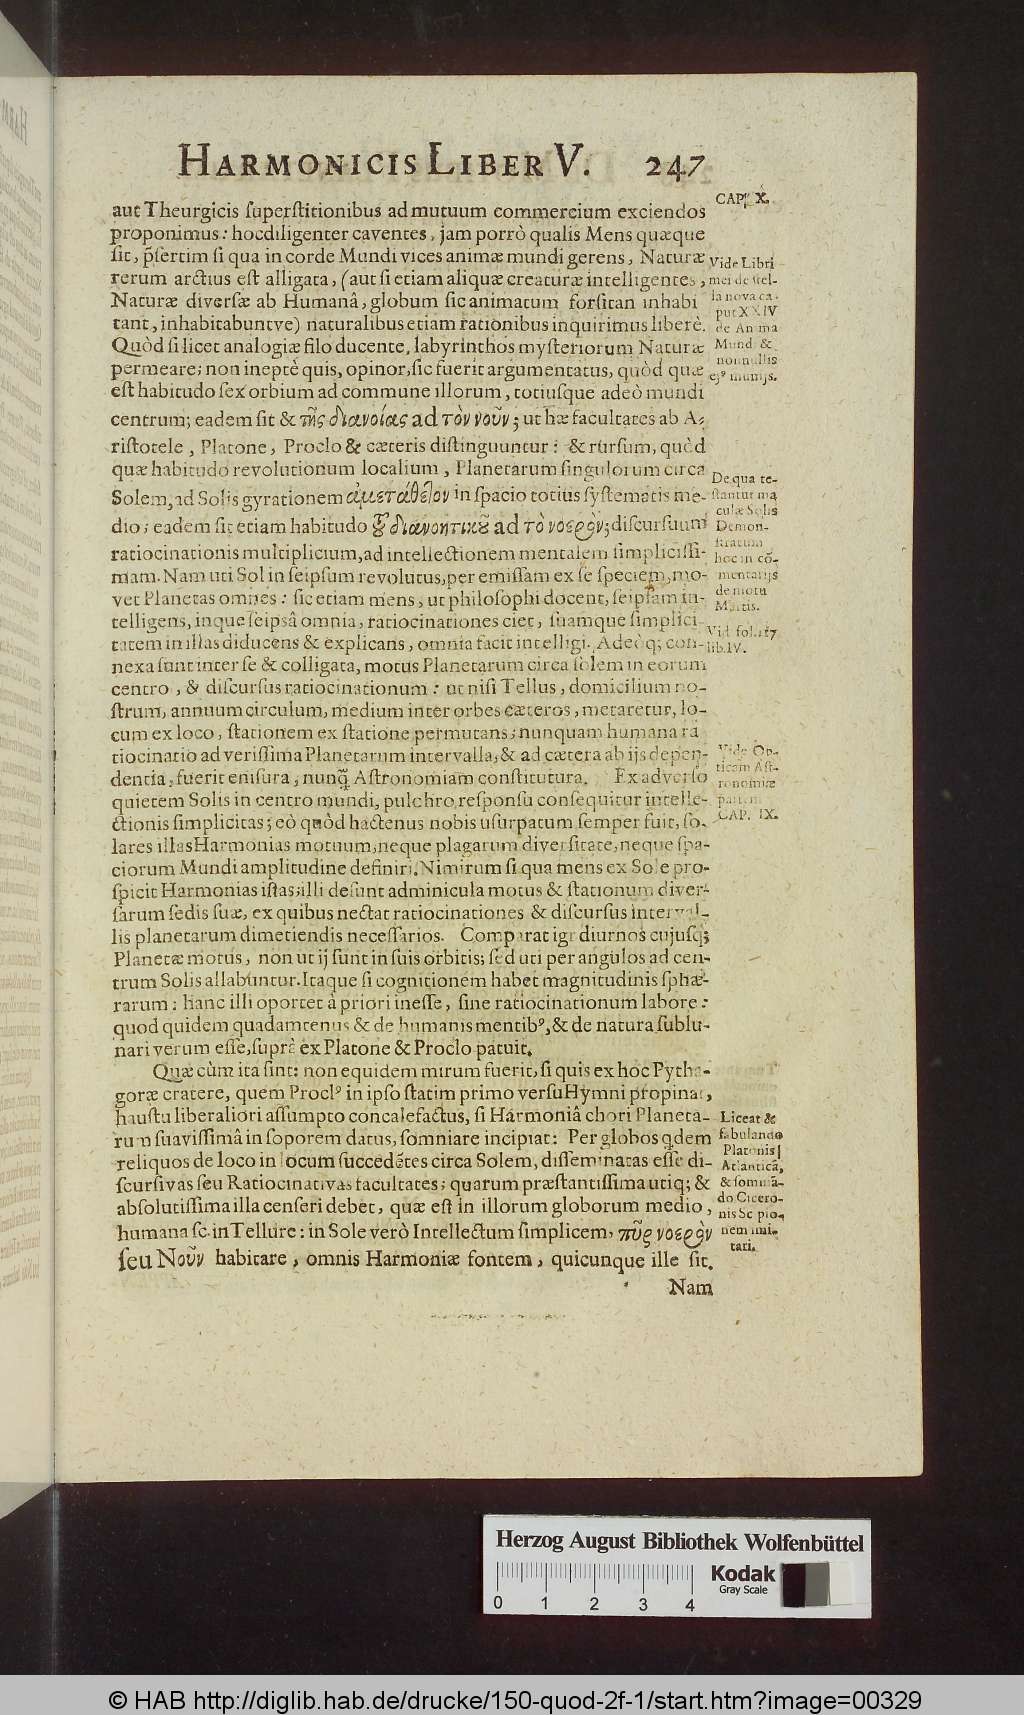 HARMONICIS LIBER V. 247
CAP. X.
aut Theurgicis superstitionibus ad mutuum commercium exciendos
proponimus: hoc diligenter caventes, jam porrò qualis Mens quæque
sit, p̃sertim si qua in corde Mundi vices animæ mundi gerens, Naturæ
rerum arctius est alligata, (aut si etiam aliquæ creaturæ intelligentes,
Naturæ diversæ ab Humanâ, globum sic animatum forsitan inhabi
tant, inhabitabuntve) naturalibus etiam rationibus inquirimus liberè.
Quòd si licet analogiæ filo ducente, labyrinthos mysteriorum Naturæ
permeare; non ineptè quis, opinor, sic fuerit argumentatus, quòd quæ
est habitudo sex orbium ad commune illorum, totiusque adeò mundi
centrum; eadem sit & τῆς διανοίας ad τὸν νοῦν; ut hæ facultates ab A-
ristotele, Platone, Proclo & cæteris distinguuntur: & rursum, quòd
quæ habitudo revolutionum localium, Planetarum singulorum circa
Solem, ad Solis gyrationem ἀμετάθετον in spacio totius systematis me-
dio; eadem sit etiam habitudo τοῦ διανοητικοῦ ad τὸ νοερὸν; discursuum
ratiocinationis multiplicium, ad intellectionem mentalem simplicissi-
mam. Nam uti Sol in seipsum revolutus, per emissam ex se speciem, mo-
vet Planetas omnes: sic etiam mens, ut philosophi docent, seipsam in-
telligens, inque seipsâ omnia, ratiocinationes ciet, suamque simplici
tatem in illas diducens & explicans, omnia facit intelligi. Adeòq; con-
nexa sunt inter se & colligata, motus Planetarum circa solem in eorum
centro, & discursus ratiocinationum: ut nisi Tellus, domicilium no-
strum, annuum circulum, medium inter orbes cæteros, metaretur, lo-
cum ex loco, stationem ex statione permutans; nunquam humana ra
tiocinatio ad verissima Planetarum intervalla, & ad cætera ab ijs depen-
dentia, fuerit enisura, nunq̃ Astronomiam constitutura. Ex adverso
quietem Solis in centro mundi, pulchro responsu consequitur intelle-
ctionis simplicitas; eò quòd hactenus nobis usurpatum semper fuit, so-
lares illas Harmonias motuum, neque plagarum diversitate, neque spa-
ciorum Mundi amplitudine definiri. Nimirum si qua mens ex Sole pro-
spicit Harmonias istas; illi desunt adminicula motus & stationum diver-
sarum sedis suæ, ex quibus nectat ratiocinationes & discursus interval-
lis planetarum dimetiendis necessarios. Comparat igr̃ diurnos cujusq;
Planetæ motus, non ut ij sunt in suis orbitis; sed uti per angulos ad cen-
trum Solis allabuntur. Itaque si cognitionem habet magnitudinis sphæ-
rarum: hanc illi oportet à priori inesse, sine ratiocinationum labore:
quod quidem quadamtenus & de humanis mentibꝰ, & de natura sublu-
nari verum esse, suprà ex Platone & Proclo patuit.
Quæ cùm ita sint: non equidem mirum fuerit, si quis ex hoc Pytha-
goræ cratere, quem Proclꝰ in ipso statim primo versu Hymni propinat,
haustu liberaliori assumpto concalefactus, si Harmoniâ chori Planeta-
rum suavissimâ in soporem datus, somniare incipiat: Per globos qdem
reliquos de loco in locum succedẽtes circa Solem, disseminatas esse di-
scursivas seu Ratiocinativas facultates; quarum præstantissima utiq; &
absolutissima illa censeri debet, quæ est in illorum globorum medio,
humana sc. in Tellure: in Sole verò Intellectum simplicem, πῦρ νοερὸν
seu Νοῦν habitare, omnis Harmoniæ fontem, quicunque ille sit.
Nam
Vide Libri
mei de stel-
la nova ca-
put XXIV
de Anima
Mundi &
nonnullis
ejꝰ munijs.
De qua te-
stantur ma
culæ Solis
Demon-
stratum
hoc in cõ-
mentarijs
de motu
Martis.
Vid. fol. 157
lib. IV.
Vide Op-
ticam Ast-
ronomiæ
partem
CAP. IX.
Liceat &
fabulando
Platonis
Atlanticã,
& somniã-
do Cicero-
nis Scipio-
nem imi-
tari.
Herzog August Bibliothek Wolfenbüttel
Kodak
Gray Scale
0 1 2 3 4
© HAB http://diglib.hab.de/drucke/150-quod-2f-1/start.htm?image=00329